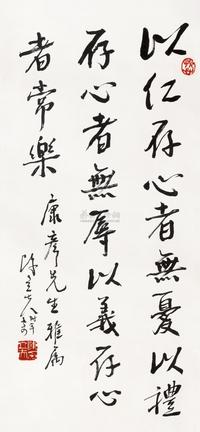 以仁存心者無憂以禮
存心者無辱以義存心
者常樂
康彥先生雅屬
陳立夫